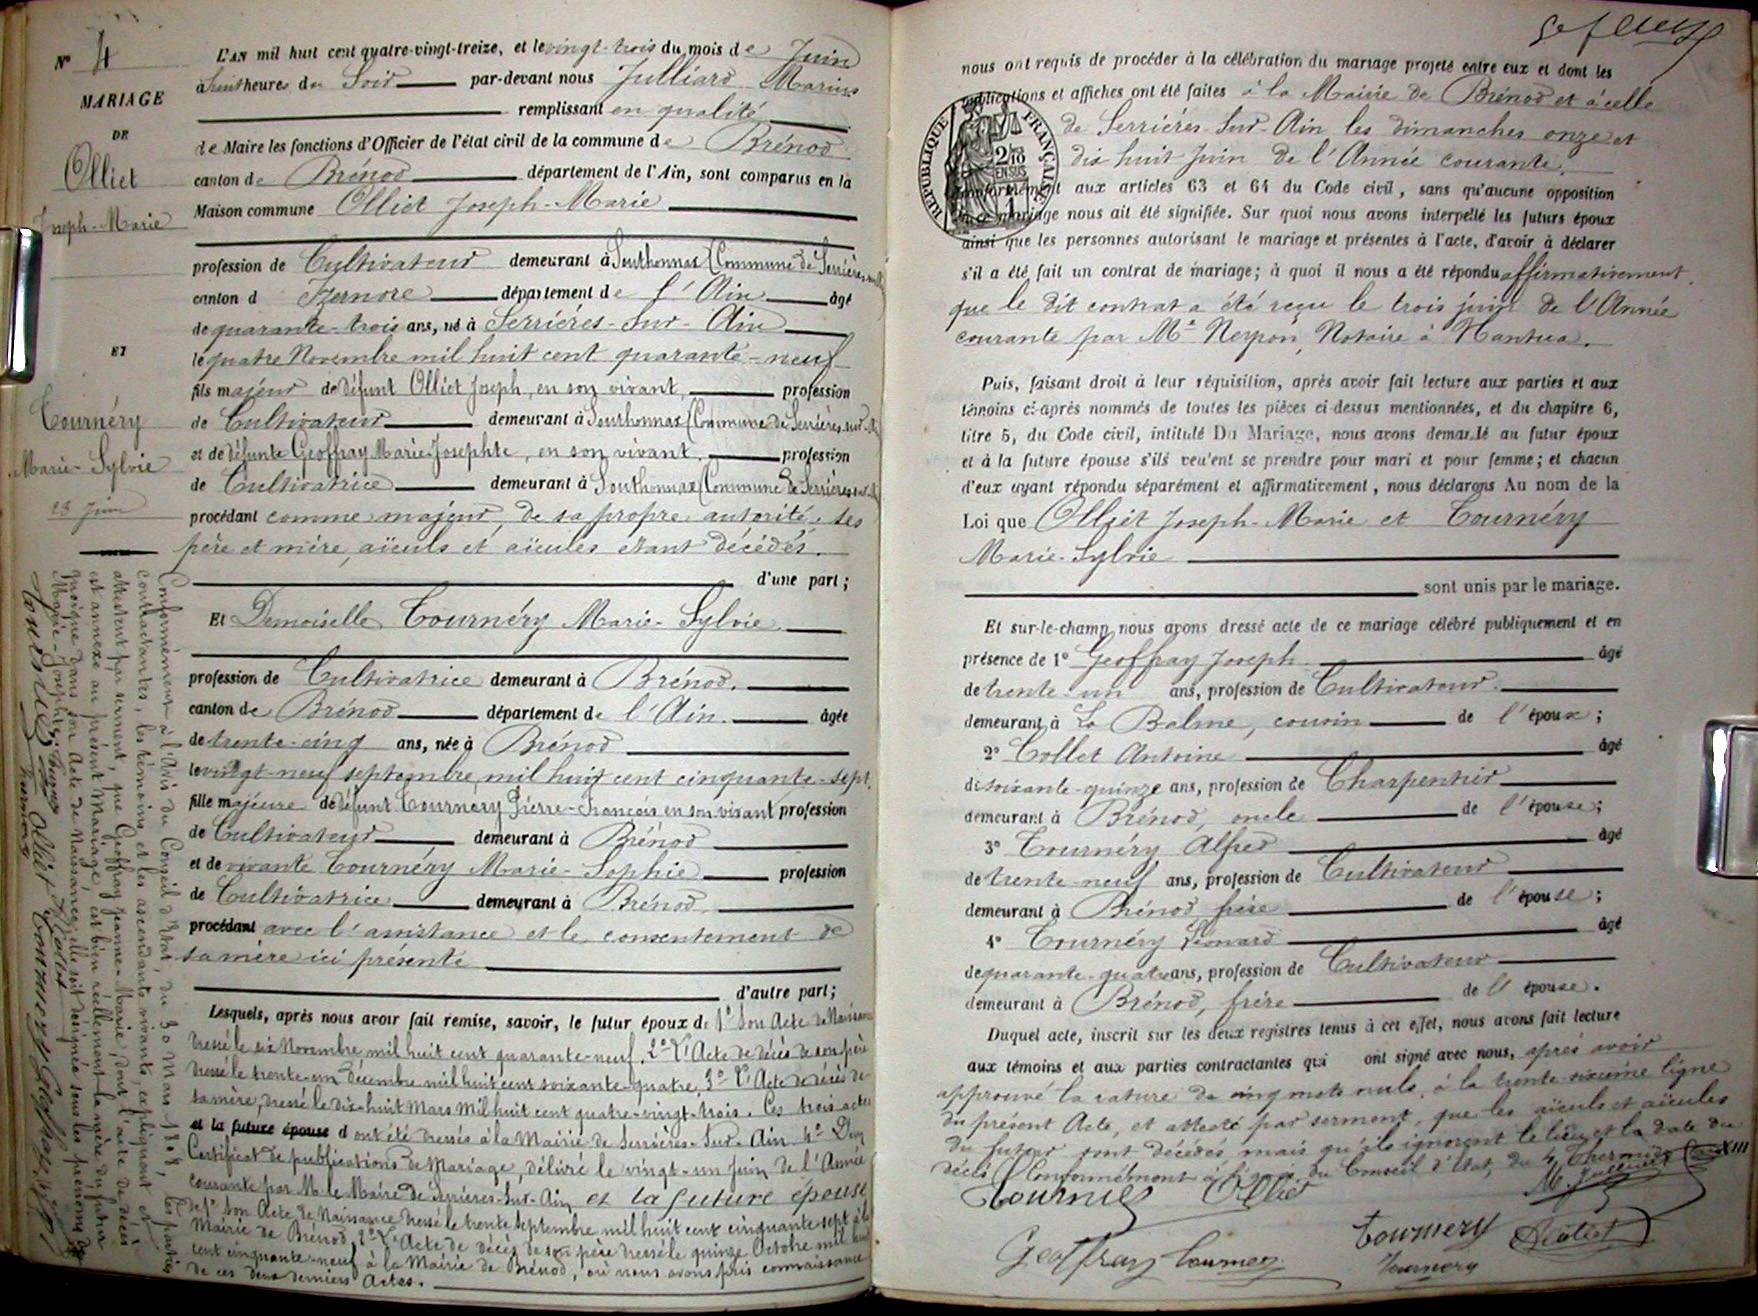 N° 4
MARIAGE
DE
Olliet
Joseph-Marie
ET
Tournéry
Marie-Sylvie
23 Juin
L'AN mil huit cent quatre-vingt-treize, et le vingt-trois du mois de Juin
à huit heures du Soir par-devant nous Julliard Marius
remplissant en qualité
de Maire les fonctions d'Officier de l'état civil de la commune de Brénod
canton de Brénod département de l'Ain, sont comparus en la
Maison commune Olliet Joseph-Marie
profession de Cultivateur demeurant à Southonnax (Commune de Serrières
canton d Izernore département de l'Ain âgé
de quarante-trois ans, né à Serrières-Sur-Ain
le quatre Novembre mil huit cent quarante-neuf
fils majeur de défunt Olliet Joseph, en son vivant, profession
de Cultivateur demeurant à Southonnax (Commune de Serrières-sur-A
et de défunte Geoffray Marie-Josephte, en son vivant, profession
de Cultivatrice demeurant à Southonnax (Commune de Serrières
procédant comme majeur, de sa propre autorité, ses
père et mère, aïeuls et aïeules étant décédés.
d'une part ;
Et Demoiselle Tournéry Marie-Sylvie
profession de Cultivatrice demeurant à Brénod.
canton de Brénod département de l'Ain. âgée
de trente-cinq ans, née à Brénod
le vingt-neuf septembre mil huit cent cinquante-sept.
fille majeure de défunt Tournéry Pierre-François en son vivant profession
de Cultivateur demeurant à Brénod
et de vivante Tournéry Marie-Sophie profession
de Cultivatrice demeurant à Brénod,
procédant avec l'assistance et le consentement de
sa mère ici présente
d'autre part ;
Lesquels, après nous avoir fait remise, savoir, le futur époux de 1° Son Acte de Naissance
dressé le six Novembre mil huit cent quarante-neuf. 2° L'Acte de décès de son père
dressé le trente-un décembre mil huit cent soixante-quatre. 3° L'Acte de décès de
sa mère, dressé le dix-huit Mars mil huit cent quatre-vingt-trois. Ces trois actes
et la future épouse d ont été dressés à la Mairie de Serrières-Sur-Ain 4° Deux
Certificat de publications de Mariage, délivré le vingt-un Juin de l'Année
courante par M. le Maire de Serrières-Sur-Ain et la future épouse
de 1° Son Acte de Naissance dressé le trente septembre mil huit cent cinquante sept à la
Mairie de Brénod, 2° L'Acte de décès de son père dressé le quinze Octobre mil huit
cent cinquante-neuf à la Mairie de Brénod, où nous avons pris connaissance
de ces deux derniers Actes.
Conformément à l'Avis du Conseil d'Etat, du 30 Mars 1808, les parties
contractantes, les témoins et les ascendants vivants, expliquent et
attestent par serment, que Geoffray Jeanne-Marie, dont l'acte de décès
est annexé au présent Mariage, est bien réellement la mère du futur
quoique dans son Acte de Naissance, elle soit désignée sous les prénoms de
Marie-Josephte.
nous ont requis de procéder à la célébration du mariage projeté entre eux et dont les
publications et affiches ont été faites à la Mairie de Brénod et à celle
de Serrières-Sur-Ain les dimanches onze et
dix huit Juin de l'Année courante.
RÉPUBLIQUE FRANÇAISE
2/10
EN SUS
conformément aux articles 63 et 64 du Code civil, sans qu'aucune opposition
au mariage nous ait été signifiée. Sur quoi nous avons interpellé les futurs époux
ainsi que les personnes autorisant le mariage et présentes à l'acte, d'avoir à déclarer
s'il a été fait un contrat de mariage; à quoi il nous a été répondu affirmativement.
que le dit contrat a été reçu le trois juin de l'Année
courante par Me Neypon, Notaire à Nantua.
Puis, faisant droit à leur réquisition, après avoir fait lecture aux parties et aux
témoins ci-après nommés de toutes les pièces ci-dessus mentionnées, et du chapitre 6,
titre 5, du Code civil, intitulé Du Mariage, nous avons demandé au futur époux
et à la future épouse s'ils veulent se prendre pour mari et pour femme; et chacun
d'eux ayant répondu séparément et affirmativement, nous déclarons Au nom de la
Loi que Olliet Joseph-Marie et Tournéry
Marie-Sylvie
sont unis par le mariage.
Et sur-le-champ nous avons dressé acte de ce mariage célébré publiquement et en
présence de 1° Geoffray Joseph âgé
de trente-un ans, profession de Cultivateur
demeurant à La Balme, cousin de l'époux ;
2° Collet Antoine âgé
de soixante-quinze ans, profession de Charpentier
demeurant à Brénod, oncle de l'épouse ;
3° Tournéry Alfred âgé
de trente-neuf ans, profession de Cultivateur
demeurant à Brénod, frère de l'épouse ;
4° Tournéry Léonard âgé
de quarante-quatre ans, profession de Cultivateur
demeurant à Brénod, frère de l'épouse.
Duquel acte, inscrit sur les deux registres tenus à cet effet, nous avons fait lecture
aux témoins et aux parties contractantes qui ont signé avec nous, après avoir
approuvé la rature de cinq mots nuls, à la trente-sixième ligne
du présent Acte, et attesté par serment, que les aïeuls et aïeules
du futur sont décédés mais qu'ils ignorent le lieu et la date du
décès (Conformément à l'avis du Conseil d'Etat, du 4 Thermidor an XIII
Olliet
Geoffray Tournery
Tournery
Collet
Tournery